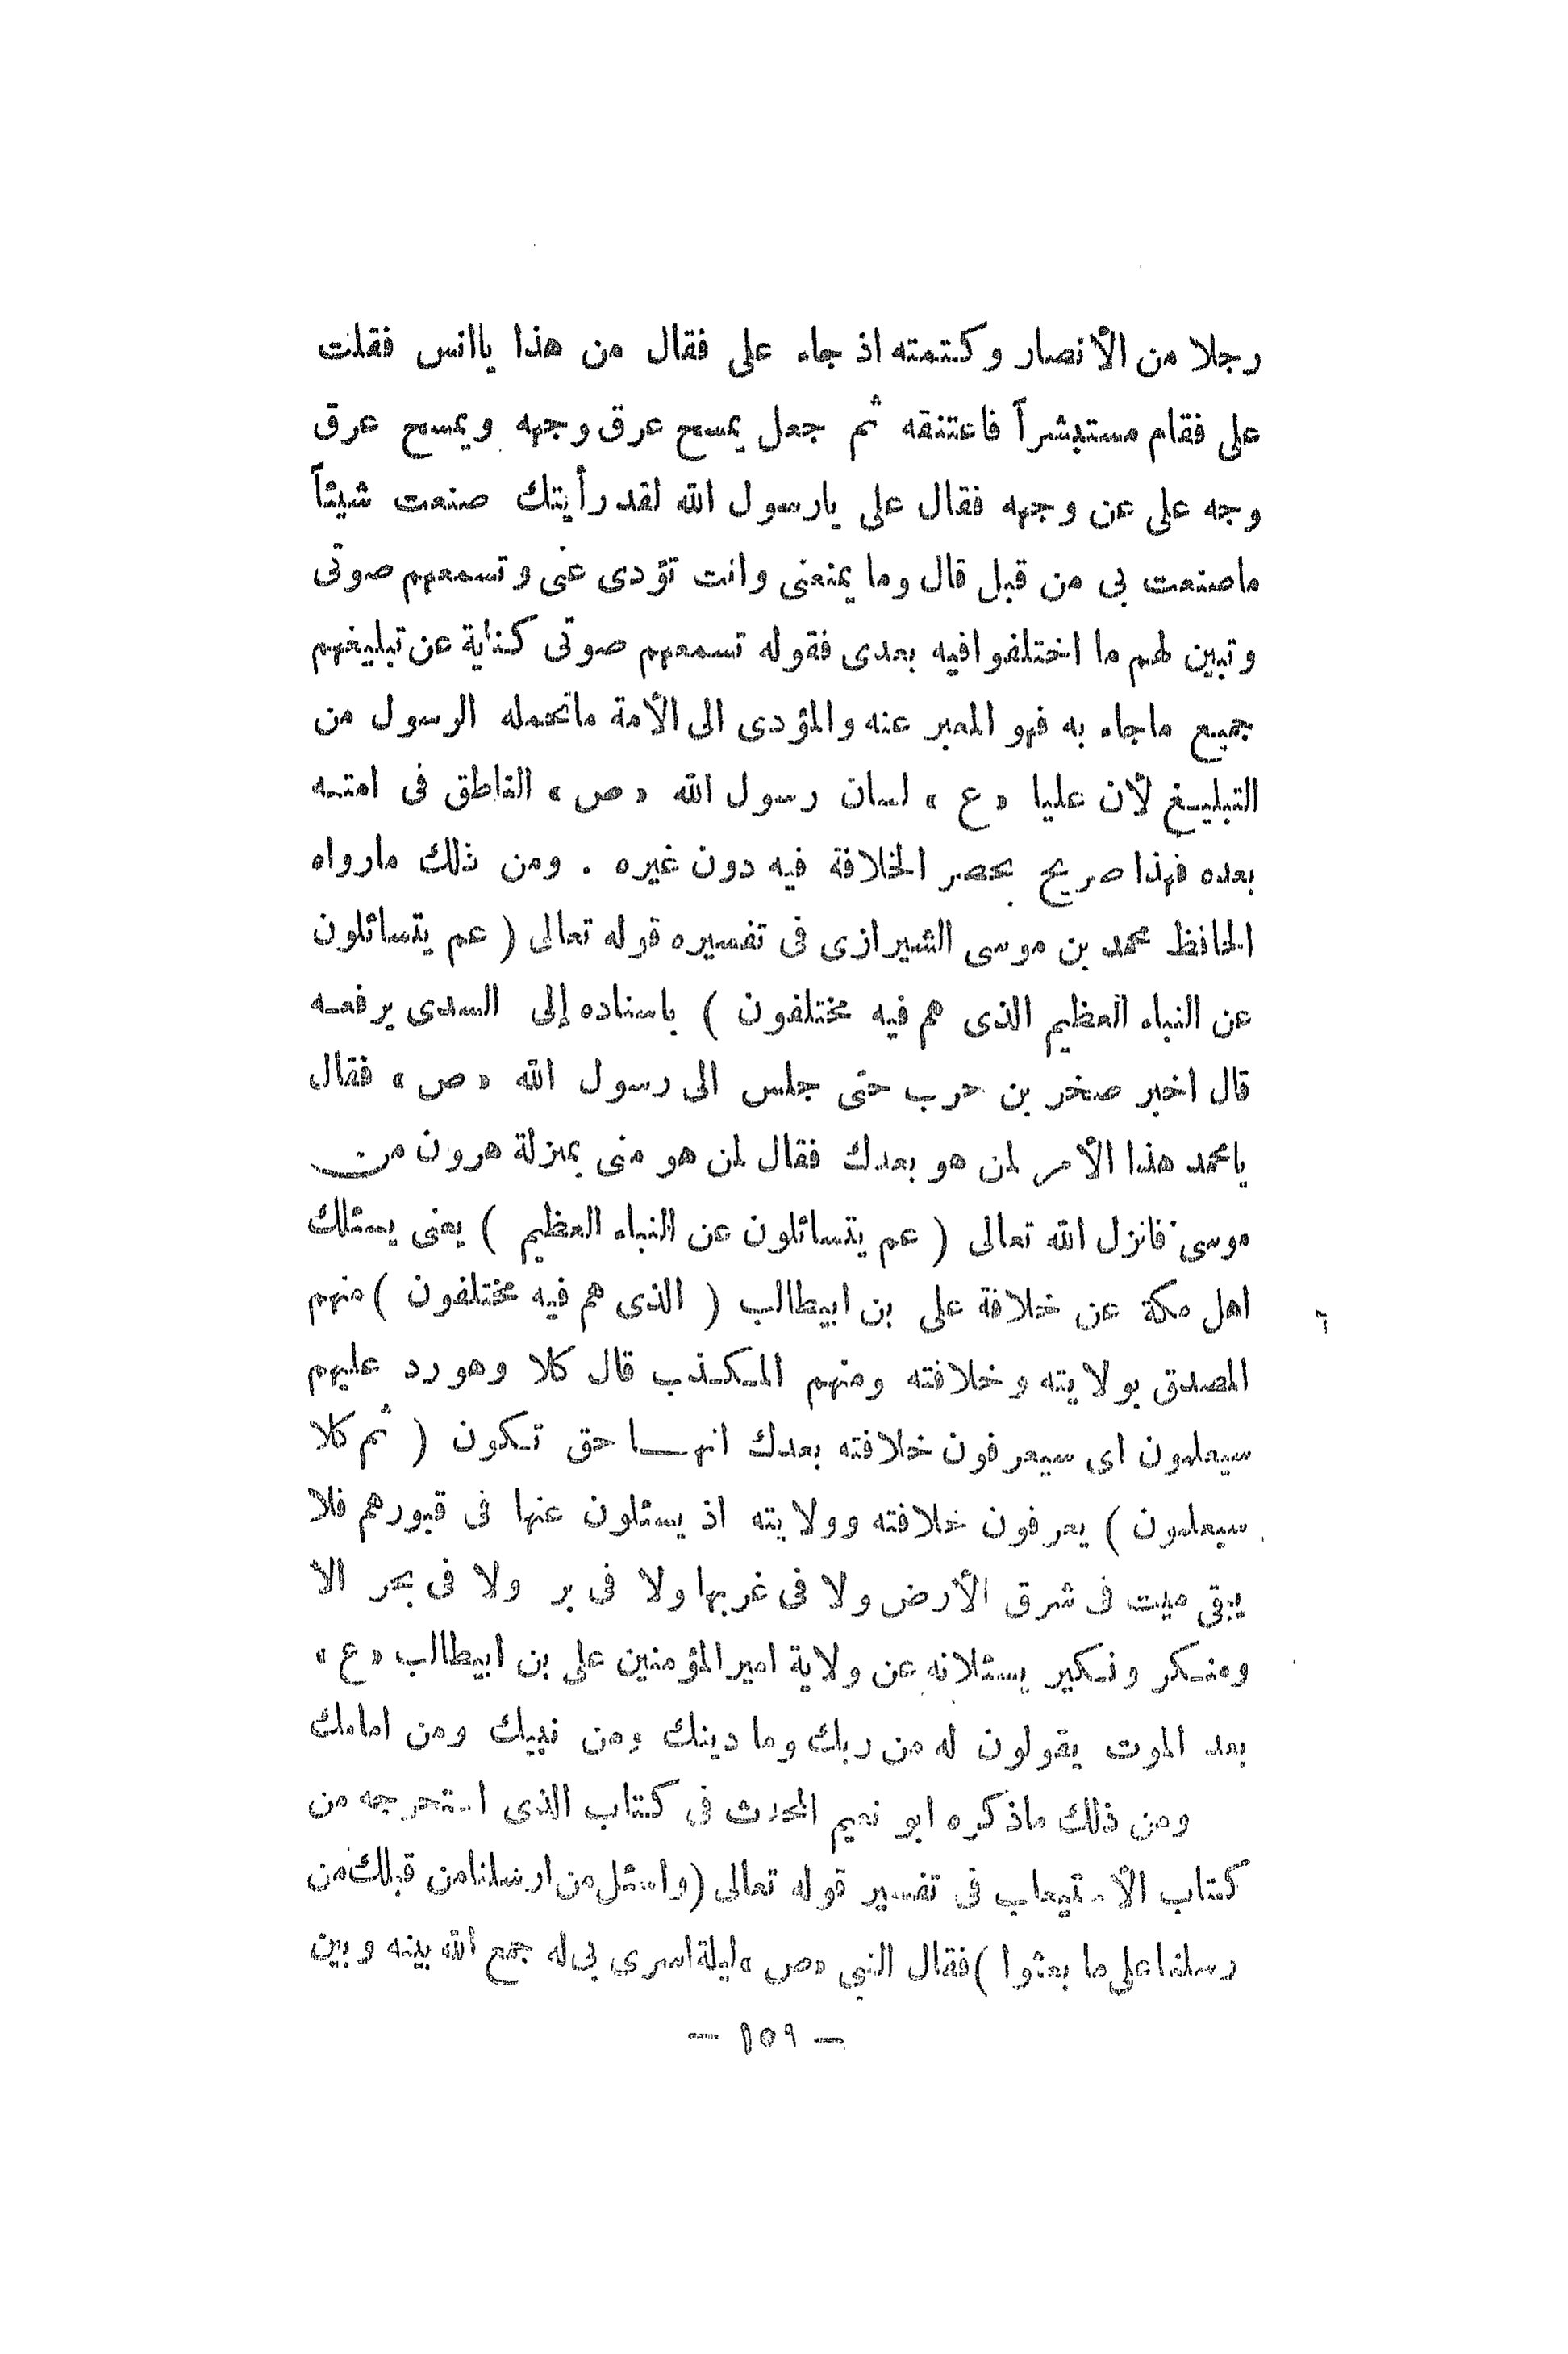 رجلا من الأنصار وكتمته اذ جاء على فقال من هذا ياانس فقلت
على فقام مستبشراً فاعتنقه ثم جعل يمسح عرق وجهه ويمسح عرق
وجه على عن وجهه فقال على يارسول الله لقد رأيتك صنعت شيئاً
ماصنعت بى من قبل قال وما يمنعنى وانت تؤدى عنى وتسمعهم صوتى
وتبين لهم ما اختلفوا فيه بعدى فقوله تسمعهم صوتى كناية عن تبليغهم
جميع ماجاء به فهو المعبر عنه والمؤدى الى الأمة ماتحمله الرسول من
التبليغ لأن عليا «ع» لسان رسول الله «ص» الناطق فى امته
بعده فهذا صريح بحصر الخلافة فيه دون غيره . ومن ذلك مارواه
الحافظ محمد بن موسى الشيرازى فى تفسيره قوله تعالى ( عم يتسائلون
عن النباء العظيم الذى هم فيه مختلفون ) باسناده إلى السدى يرفعه
قال اخبر صخر بن حرب حتى جلس الى رسول الله «ص» فقال
يامحمد هذا الأمر لمن هو بعدك فقال لمن هو منى بمنزلة هرون من
موسى فانزل الله تعالى ( عم يتسائلون عن النباء العظيم ) يعنى يسئلك
اهل مكة عن خلافة على بن ابيطالب ( الذى هم فيه مختلفون ) منهم
المصدق بولايته وخلافته ومنهم المكذب قال كلا وهو رد عليهم
سيعلمون اى سيعرفون خلافته بعدك انها حق تكون ( ثم كلا
سيعلمون ) يعرفون خلافته وولايته اذ يسئلون عنها فى قبورهم فلا
يبقى ميت فى شرق الأرض ولا فى غربها ولا فى بر ولا فى بحر الا
ومنكر ونكير يسئلانه عن ولاية امير المؤمنين على بن ابيطالب «ع»
بعد الموت يقولون له من ربك وما دينك ومن نبيك ومن امامك
ومن ذلك ماذكره ابو نعيم المحدث فى كتاب الذى استخرجه من
كتاب الأستيعاب فى تفسير قوله تعالى (واسئل من ارسلنا من قبلك من
رسلنا على ما بعثوا ) فقال النبى «ص» ليلة اسرى بى له جمع الله بينه وبين
— ١٥٩ —